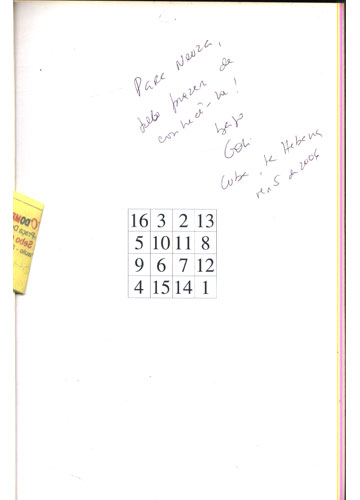 Para Neuza,
pelo prazer de
conhecê-la!
beijo
Cuba, La Habana
de 2006
16 3 2 13
5 10 11 8
9 6 7 12
4 15 14 1
Sebo